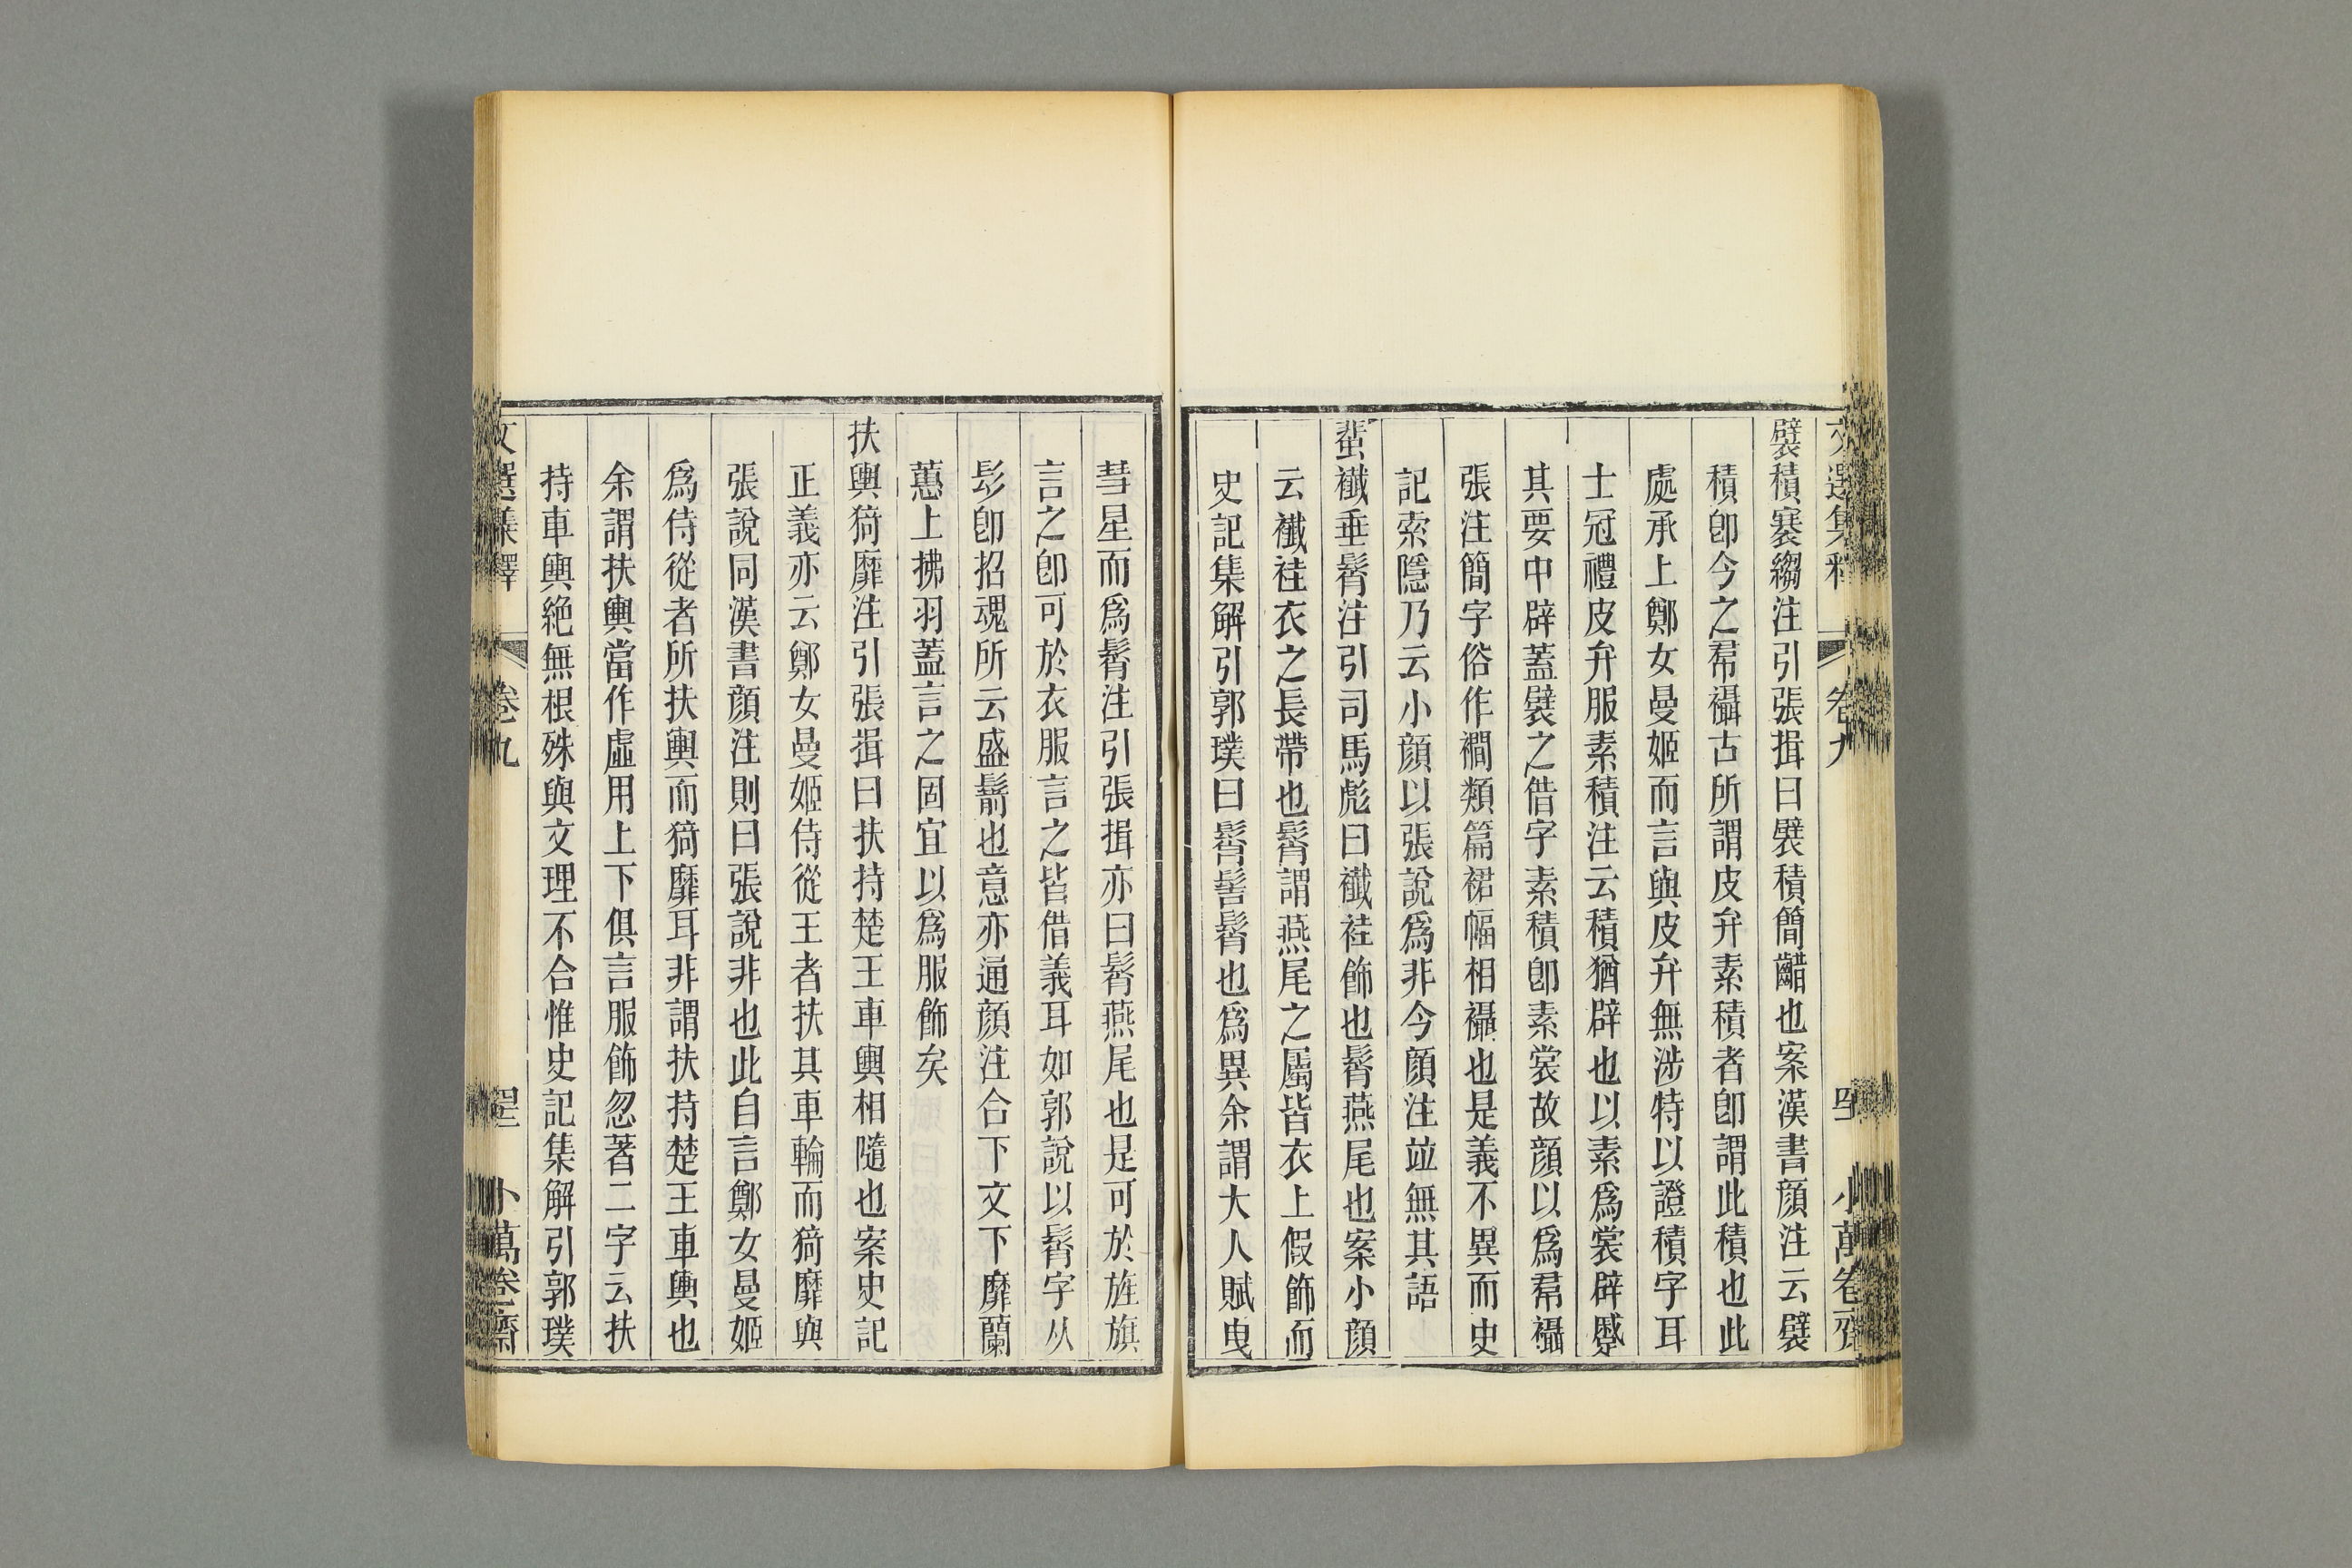 文選集釋 卷九 小萬卷齋
襞積褰縐注引張揖曰襞積簡齰也案漢書顏注云襞
積卽今之帬襵古所謂皮弁素積者卽謂此積也此
處承上鄭女曼姬而言與皮弁無涉特以證積字耳
士冠禮皮弁服素積注云積猶辟也以素爲裳辟蹙
其要中辟蓋襞之借字素積卽素裳故顏以爲帬襵
張注簡字俗作襉類篇裙幅相襵也是義不異而史
記索隱乃云小顏以張說爲非今顏注並無其語
蜚襳垂髾注引司馬彪曰襳袿飾也髾燕尾也案小顏
云襳袿衣之長帶也髾謂燕尾之屬皆衣上假飾而
史記集解引郭璞曰髾髻髾也爲異余謂大人賦曳
彗星而爲髾注引張揖亦曰髾燕尾也是可於旌旗
言之卽可於衣服言之皆借義耳如郭說以髾字从
髟卽招魂所云盛鬋也意亦通顏注合下文下靡蘭
蕙上拂羽蓋言之固宜以爲服飾矣
扶輿猗靡注引張揖曰扶持楚王車輿相隨也案史記
正義亦云鄭女曼姬侍從王者扶其車輪而猗靡與
張說同漢書顏注則曰張說非也此自言鄭女曼姬
爲侍從者所扶輿而猗靡耳非謂扶持楚王車輿也
余謂扶輿當作虛用上下俱言服飾忽著二字云扶
持車輿絕無根殊與文理不合惟史記集解引郭璞
文選集釋 卷九 小萬卷齋